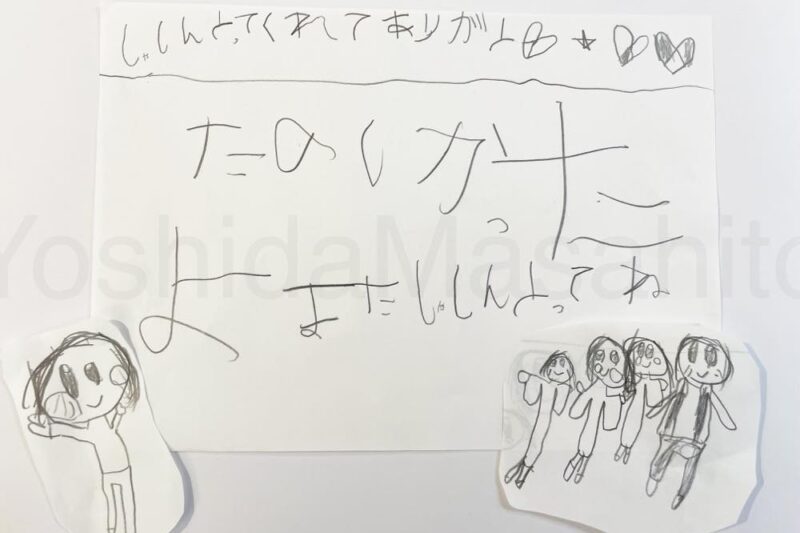 しゃしんとってくれてありがとう
たのしかった
よ またしゃしんとってね
YoshidaMasahito